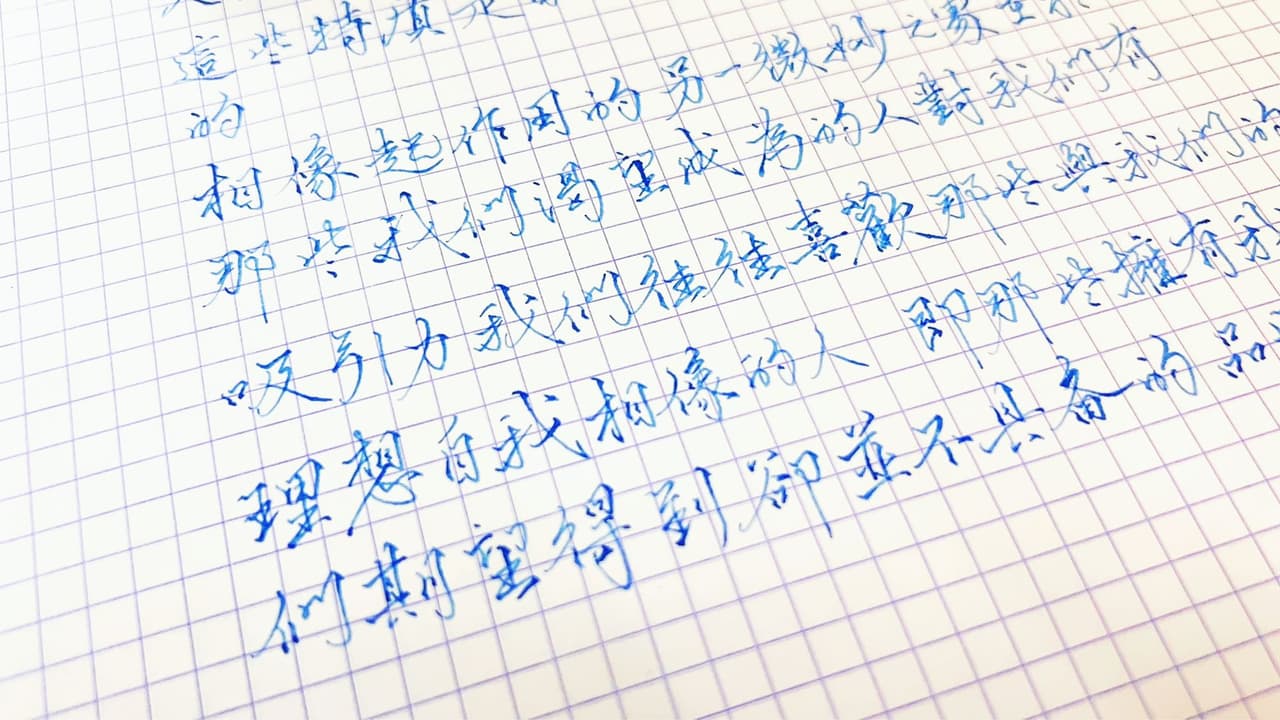 這些特填是
的
相像起作用的另一微妙之處在於
那些我們渴望成為的人對我們有
吸引力我們往往喜歡那些與我們的
理想自我相像的人 即那些擁有我
們期望得到卻並不具备的品